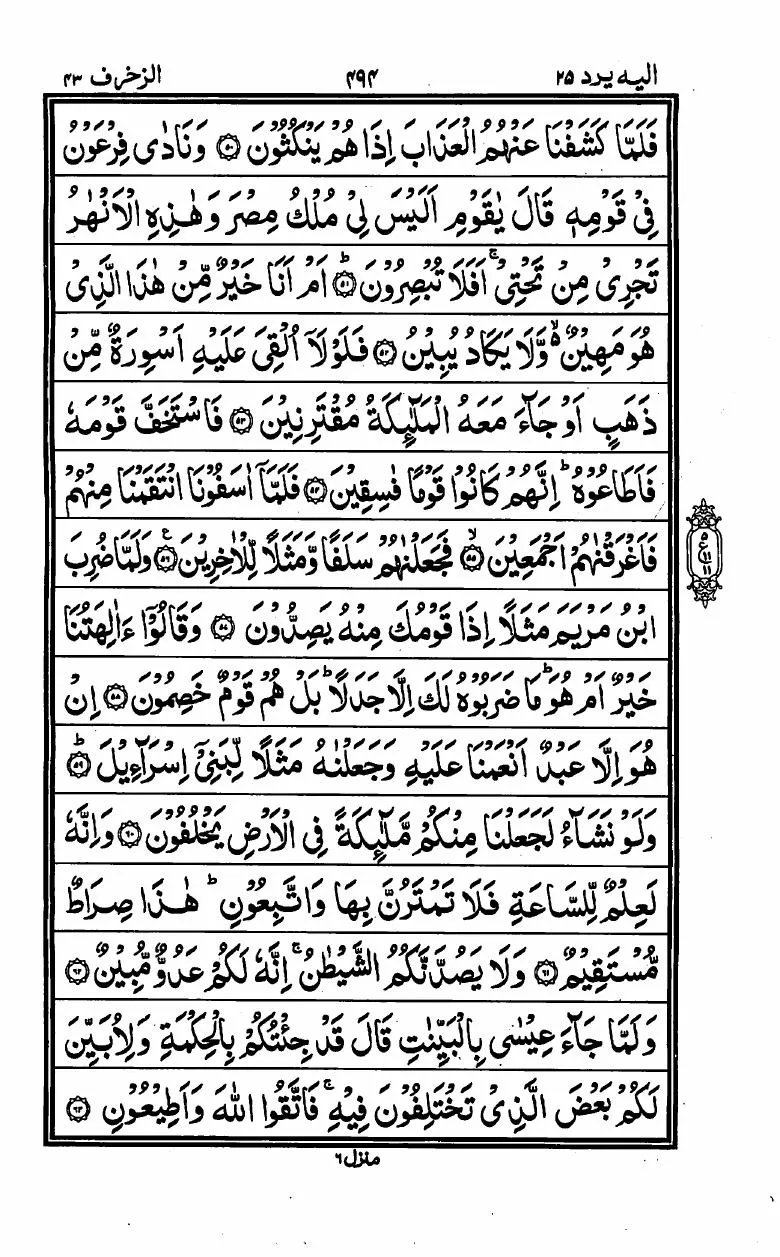 اليه يرد ۲۵
۴۹۴
الزخرف ۴۳
فَلَمَّا كَشَفْنَا عَنْهُمُ الْعَذَابَ اِذَا هُمْ يَنْكُثُوْنَ ﴿۵۰﴾ وَنَادٰى فِرْعَوْنُ
فِىْ قَوْمِهٖ قَالَ يٰقَوْمِ اَلَيْسَ لِىْ مُلْكُ مِصْرَ وَهٰذِهِ الْاَنْهٰرُ
تَجْرِىْ مِنْ تَحْتِىْ ۚ اَفَلَا تُبْصِرُوْنَ ﴿۵۱﴾ ؕ اَمْ اَنَا خَيْرٌ مِّنْ هٰذَا الَّذِىْ
هُوَ مَهِيْنٌ ۙ۬ وَّلَا يَكَادُ يُبِيْنُ ﴿۵۲﴾ فَلَوْلَاۤ اُلْقِىَ عَلَيْهِ اَسْوِرَةٌ مِّنْ
ذَهَبٍ اَوْ جَآءَ مَعَهُ الْمَلٰٓئِكَةُ مُقْتَرِنِيْنَ ﴿۵۳﴾ فَاسْتَخَفَّ قَوْمَهٗ
فَاَطَاعُوْهُ ؕ اِنَّهُمْ كَانُوْا قَوْمًا فٰسِقِيْنَ ﴿۵۴﴾ فَلَمَّاۤ اٰسَفُوْنَا انْتَقَمْنَا مِنْهُمْ
فَاَغْرَقْنٰهُمْ اَجْمَعِيْنَ ﴿۵۵﴾ ۙ فَجَعَلْنٰهُمْ سَلَفًا وَّمَثَلًا لِّلْاٰخِرِيْنَ ﴿۵۶﴾ ع وَلَمَّا ضُرِبَ
ابْنُ مَرْيَمَ مَثَلًا اِذَا قَوْمُكَ مِنْهُ يَصِدُّوْنَ ﴿۵۷﴾ وَقَالُوْۤا ءَاٰلِهَتُنَا
خَيْرٌ اَمْ هُوَ ؕ مَا ضَرَبُوْهُ لَكَ اِلَّا جَدَلًا ؕ بَلْ هُمْ قَوْمٌ خَصِمُوْنَ ﴿۵۸﴾ اِنْ
هُوَ اِلَّا عَبْدٌ اَنْعَمْنَا عَلَيْهِ وَجَعَلْنٰهُ مَثَلًا لِّبَنِىْۤ اِسْرَآءِيْلَ ﴿۵۹﴾ ؕ
وَلَوْ نَشَآءُ لَجَعَلْنَا مِنْكُمْ مَّلٰٓئِكَةً فِى الْاَرْضِ يَخْلُفُوْنَ ﴿۶۰﴾ وَاِنَّهٗ
لَعِلْمٌ لِّلسَّاعَةِ فَلَا تَمْتَرُنَّ بِهَا وَاتَّبِعُوْنِ ؕ هٰذَا صِرَاطٌ
مُّسْتَقِيْمٌ ﴿۶۱﴾ وَلَا يَصُدَّنَّكُمُ الشَّيْطٰنُ ۚ اِنَّهٗ لَكُمْ عَدُوٌّ مُّبِيْنٌ ﴿۶۲﴾
وَلَمَّا جَآءَ عِيْسٰى بِالْبَيِّنٰتِ قَالَ قَدْ جِئْتُكُمْ بِالْحِكْمَةِ وَلِاُبَيِّنَ
لَكُمْ بَعْضَ الَّذِىْ تَخْتَلِفُوْنَ فِيْهِ ۚ فَاتَّقُوا اللّٰهَ وَاَطِيْعُوْنِ ﴿۶۳﴾
۵
ع ۱۱
۱۱
منزل ۶